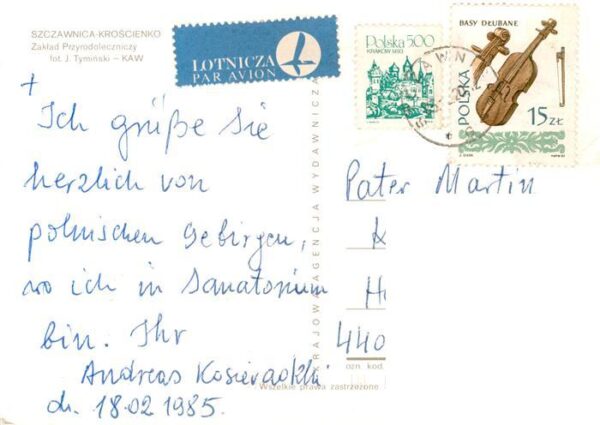 SZCZAWNICA-KROŚCIENKO
Zakład Przyrodoleczniczy
fot. J. Tymiński – KAW
LOTNICZA
PAR AVION
Polska 500
BASY DŁUBANE
POLSKA
15 ZŁ
+
Ich grüße Sie
herzlich von
polnischen Gebirgen,
wo ich in Sanatorium
bin. Ihr
Andreas
dn. 18.02 1985.
KRAJOWA AGENCJA WYDAWNICZA
Pater Martin
K
H
440
ozn. kod.
Wszelkie prawa zastrzeżone